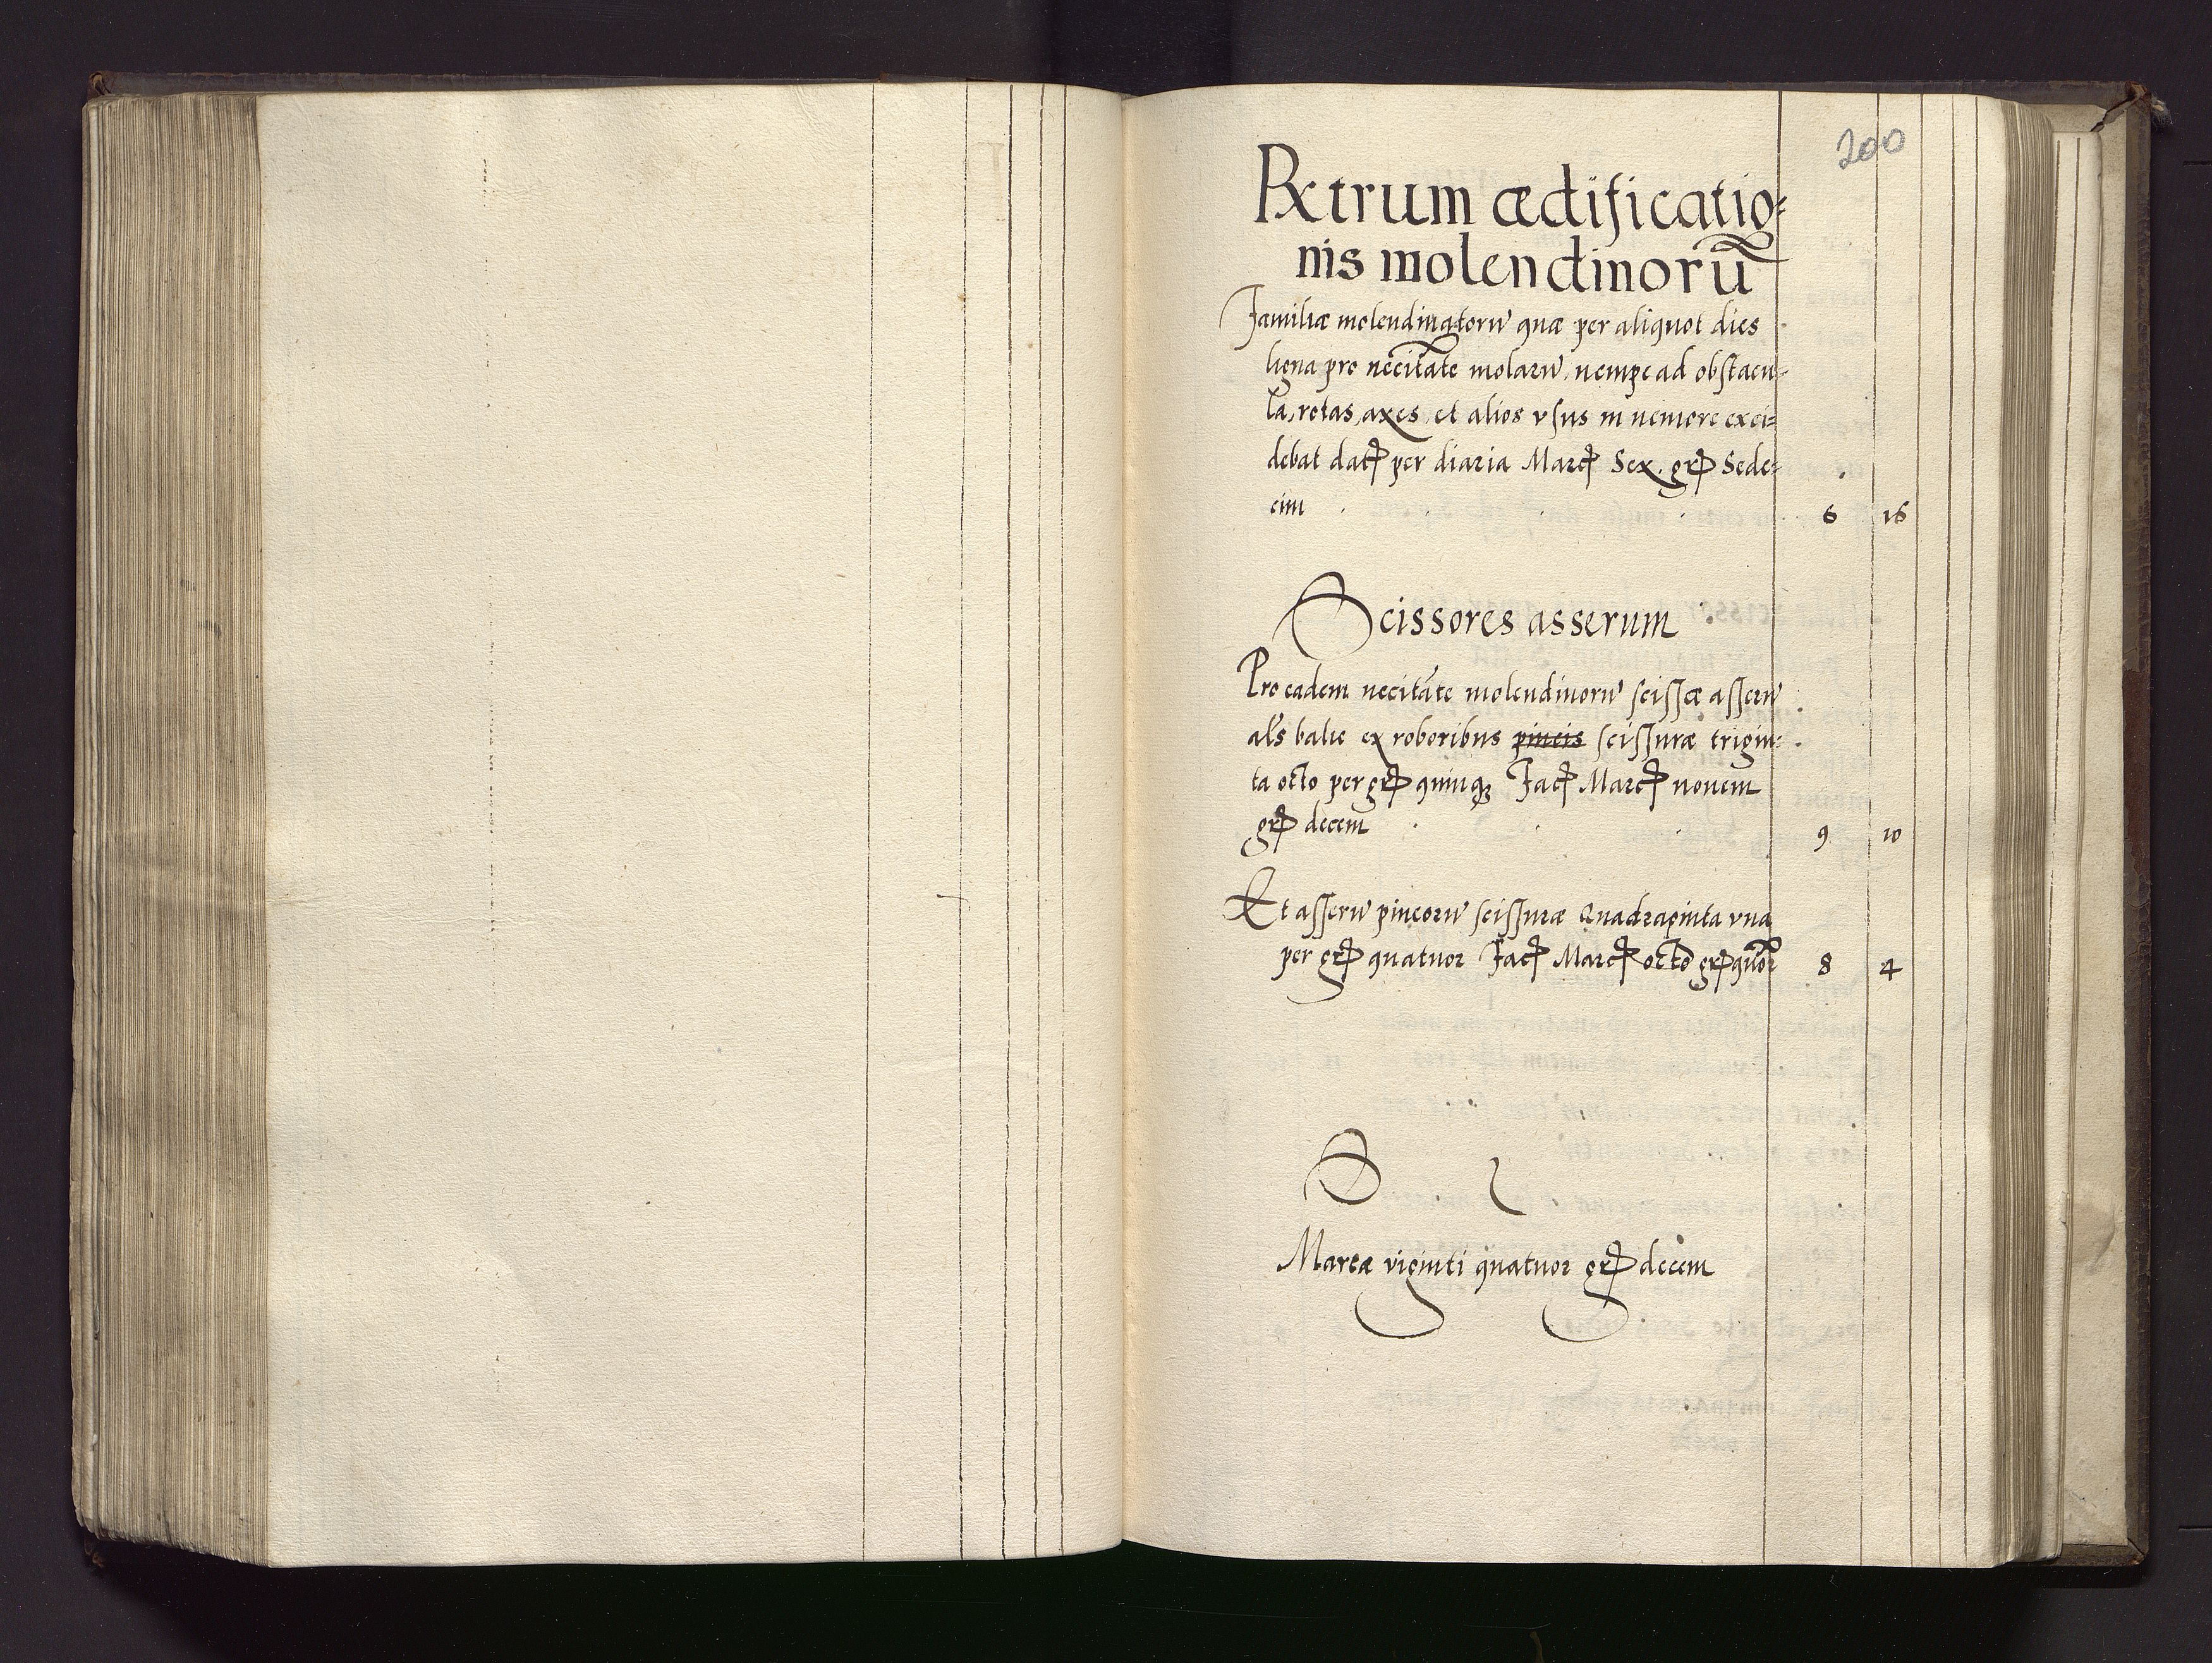 200
Rētrum ædificatio=
nis molendinorū
Familiæ molendinatorū quæ per aliquot dies
ligna pro necītate molarū, nempe ad obstacu=
la, rotas, axes, et alios vsus in nemore exci=
debat dat per diaria Marc Sex. gr Sede=
cim 6 16
Scissores asserum
Pro eadem necitāte molendinorū scissæ asserū
als balie ex roboribus pineis scissuræ trigin=
ta octo per gr quinq Fac Marc nouem
gr decem 9 10
Et asserū pineorū scissuræ Quadraginta vna
per gr quatuor Fac Marc octo gr quor 8 4
S
Marcæ viginti quatuor gr decem